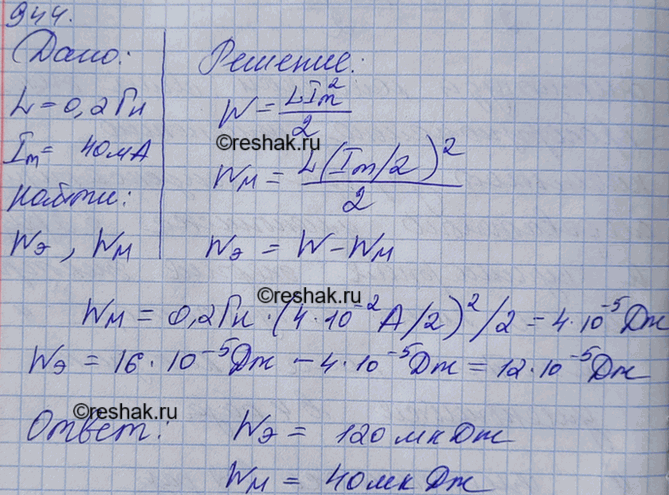 944.
Дано:
L = 0,2 Гн
Im = 40 мА
Найти:
Wэ, Wм
Решение:
W = LIm²/2
©reshak.ru
Wм = L(Im/2)²/2
Wэ = W - Wм
©reshak.ru
Wм = 0,2 Гн · (4·10⁻² А/2)²/2 = 4·10⁻⁵ Дж
Wэ = 16·10⁻⁵ Дж - 4·10⁻⁵ Дж = 12·10⁻⁵ Дж
©reshak.ru
Ответ: Wэ = 120 мкДж
Wм = 40 мкДж